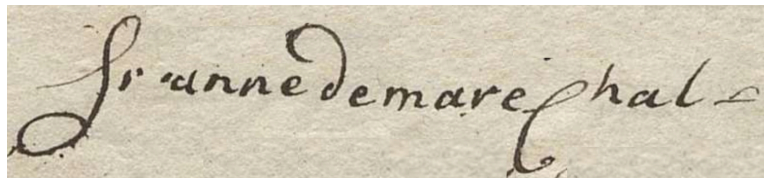 Sr anne de marechal